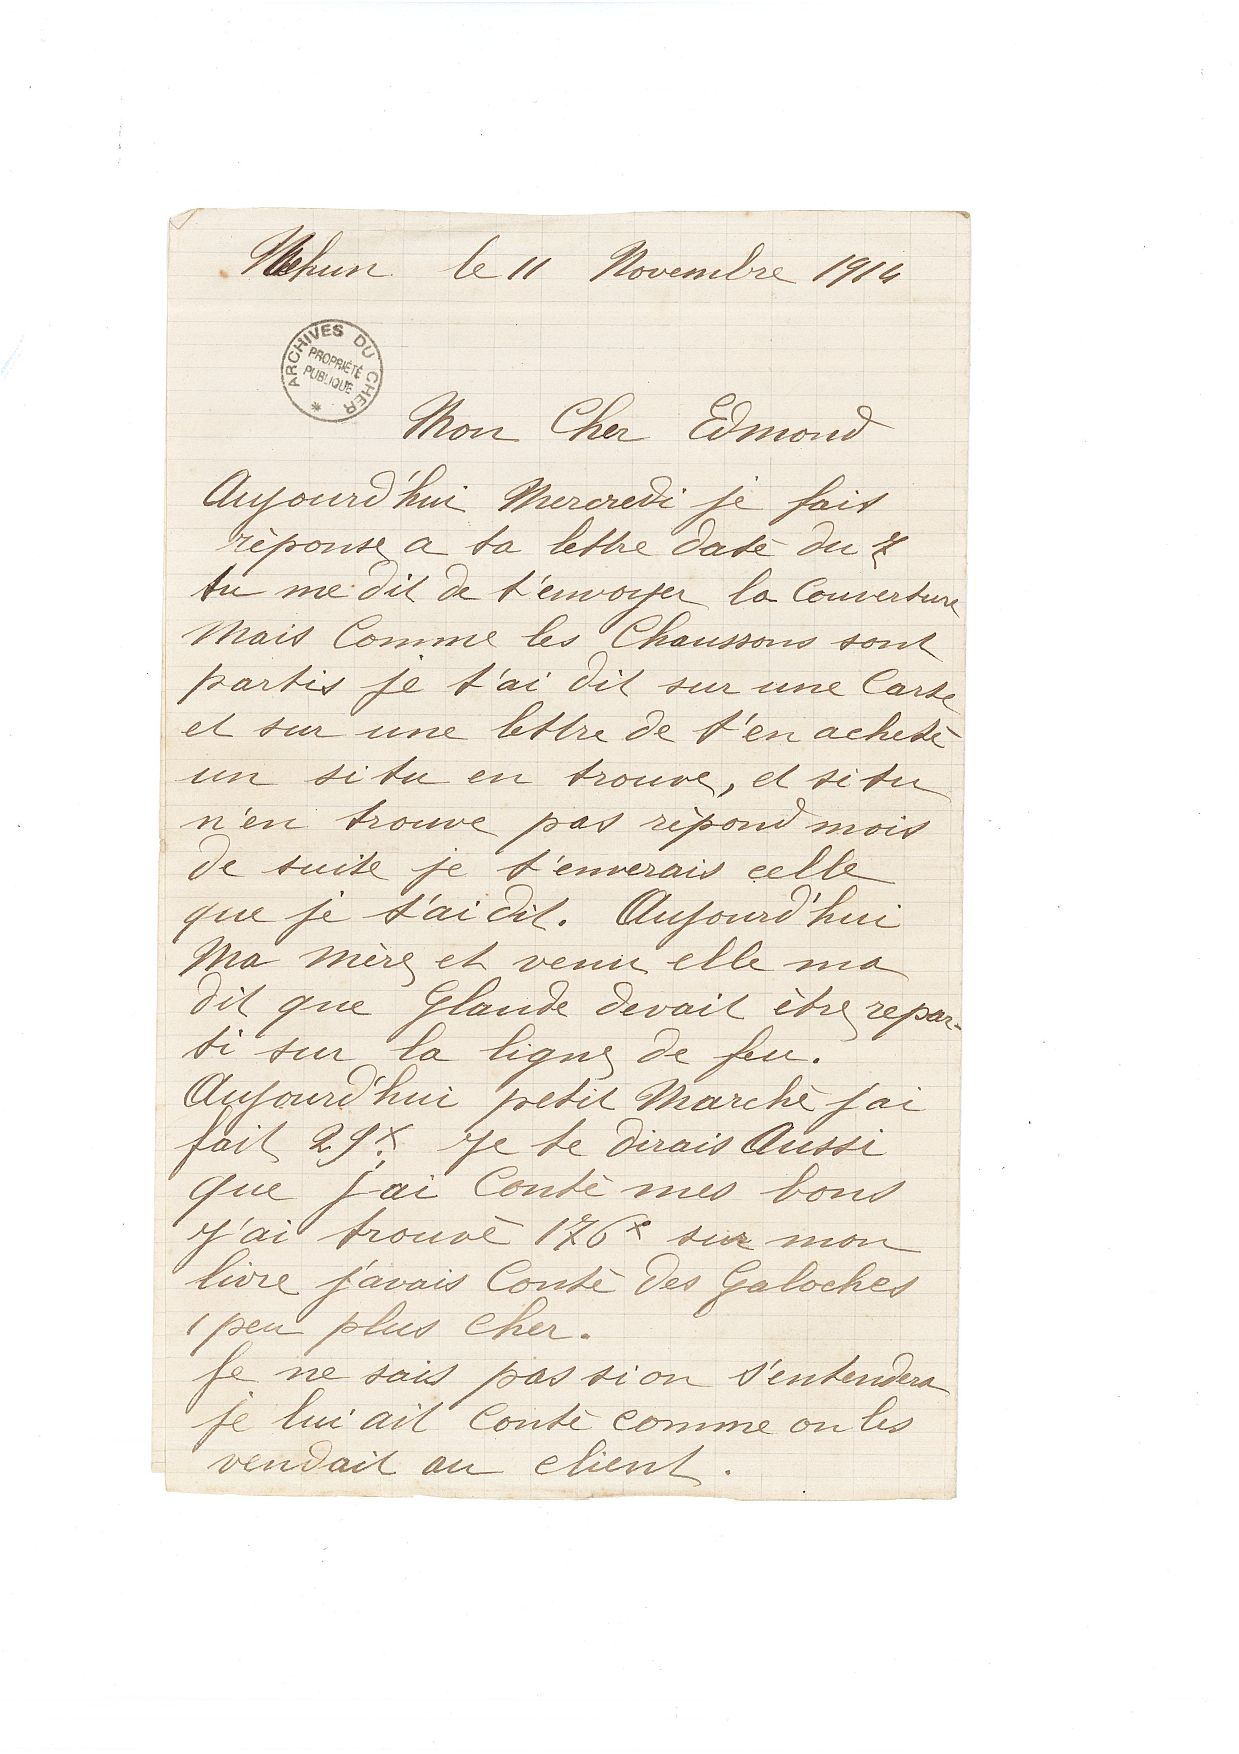 Mehun le 11 Novembre 1914
ARCHIVES DU CHER
PROPRIÉTÉ
PUBLIQUE
Mon Cher Edmond
Aujourd'hui Mercredi je fais
réponse a ta lettre daté du 7
tu me dit de t'envoyer la Couverture
Mais Comme les Chaussons sont
partis je t'ai dit sur une Carte
et sur une lettre de t'en acheté
un si tu en trouve, et si tu
n'en trouve pas répond mois
de suite je t'enverais celle
que je t'ai dit. Aujourd'hui
Ma Mère et venu elle ma
dit que Glaude devait être repar-
ti sur la ligne de feu.
Aujourd'hui petit Marché j'ai
fait 29x. Je te dirais Aussi
que j'ai Conté mes bons
J'ai trouvé 176x sur mon
livre j'avais Conté des Galoches
1 peu plus Cher.
Je ne sais pas si on s'entendera
je lui ait Conté comme on les
vendait au client.